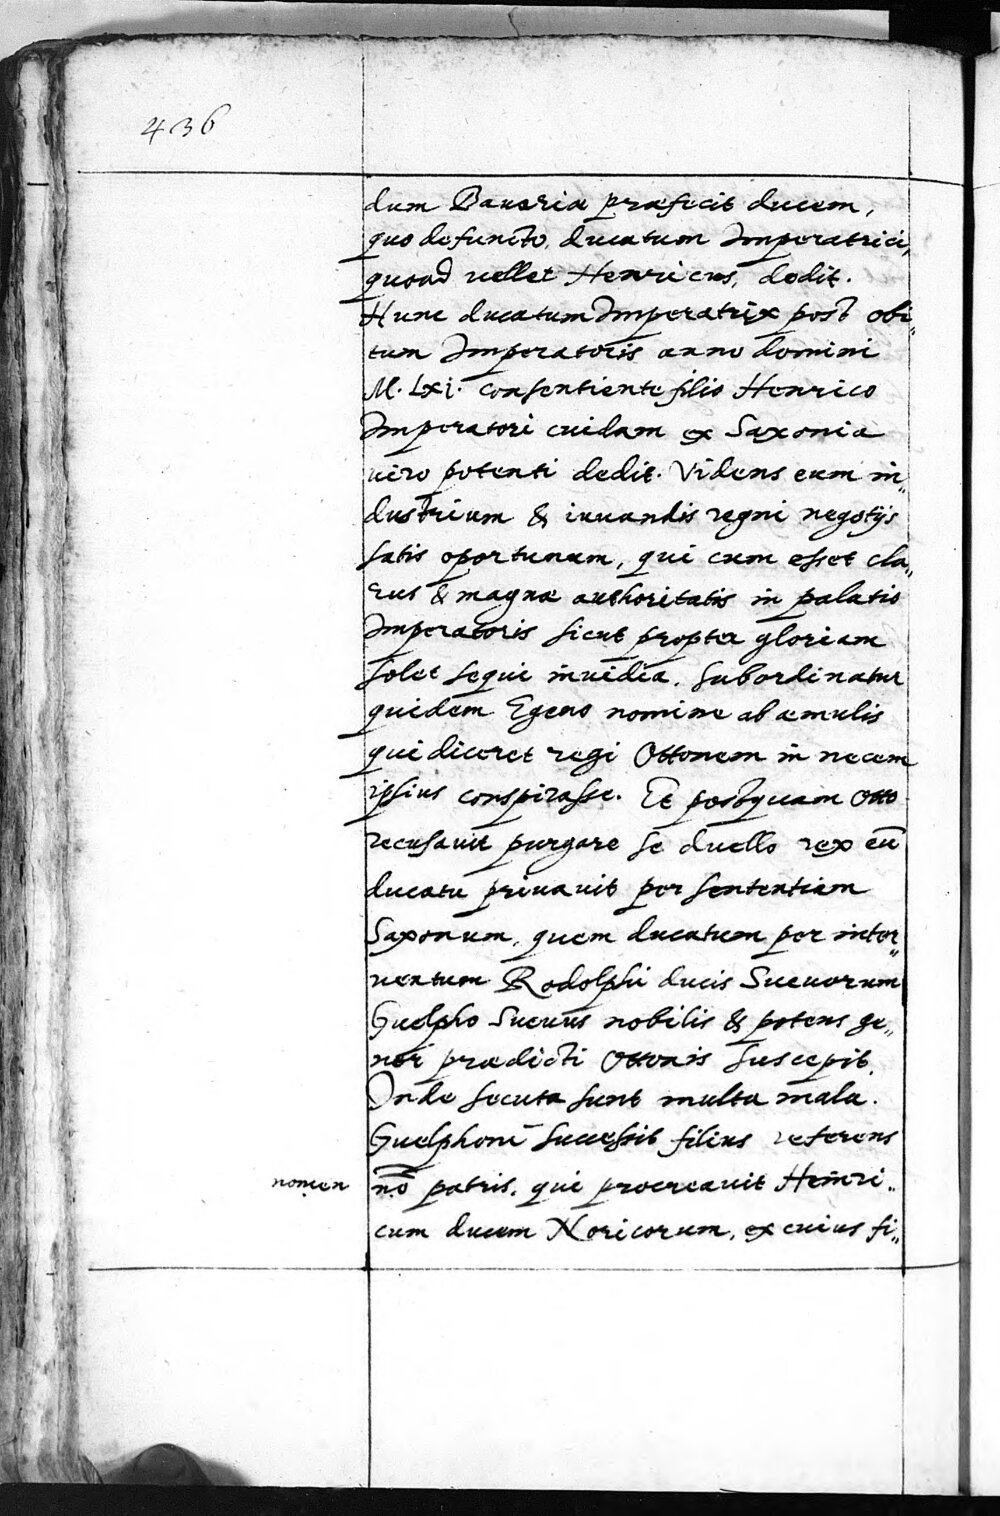 436
dum Bauariæ præfecit ducem,
quo defuncto, ducatum Imperatrici,
quoad uellet Henricus, dedit.
Hunc ducatum Imperatrix post obi„
tum Imperatoris anno domini
M. Lxi. consentiente filio Henrico
Imperatori cuidam ex Saxonia
uiro potenti dedit. Videns eum in„
dustrium & iuuandis regni negotijs
satis oportunum, qui cum esset cla„
rus & magnæ authoritatis in palatio
Imperatoris sicut propter gloriam
solet sequi inuidia. subordinatur
quidem Egeno nomine ab æmulis
qui diceret regi Ottonem in necem
ipsius conspirasse. Et postquam Otto
recusauit purgare se duello rex eū
ducatu priuauit per sententiam
Saxonum, quem ducatum per inter„
uentum Rodolphi ducis Sueuorum
Guelpho Sueuus nobilis & potens ge„
ner prædicti Ottonis suscepit.
Inde secuta sunt multa mala.
Guelphoni successit filius referens
nomen nō patris, qui procreauit Heinri„
cum ducem Noricorum, ex cuius fi„